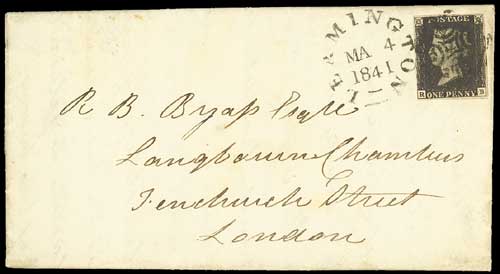 LEAMINGTON
MA 4
1841
POSTAGE
ONE PENNY
R. B. Byass Esqre
Langbourn Chambers
Fenchurch Street
London